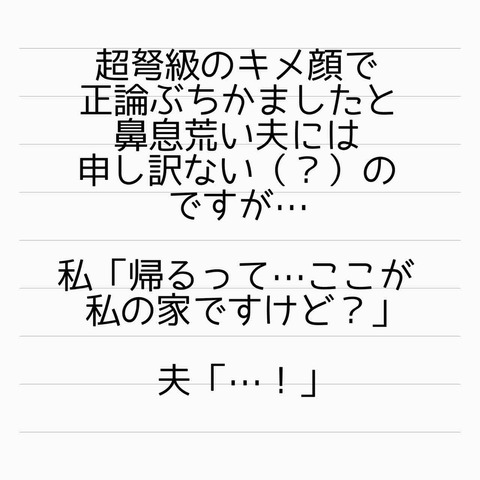 超弩級のキメ顔で
正論ぶちかましたと
鼻息荒い夫には
申し訳ない（？）の
ですが…
私「帰るって…ここが
私の家ですけど？」
夫「…！」